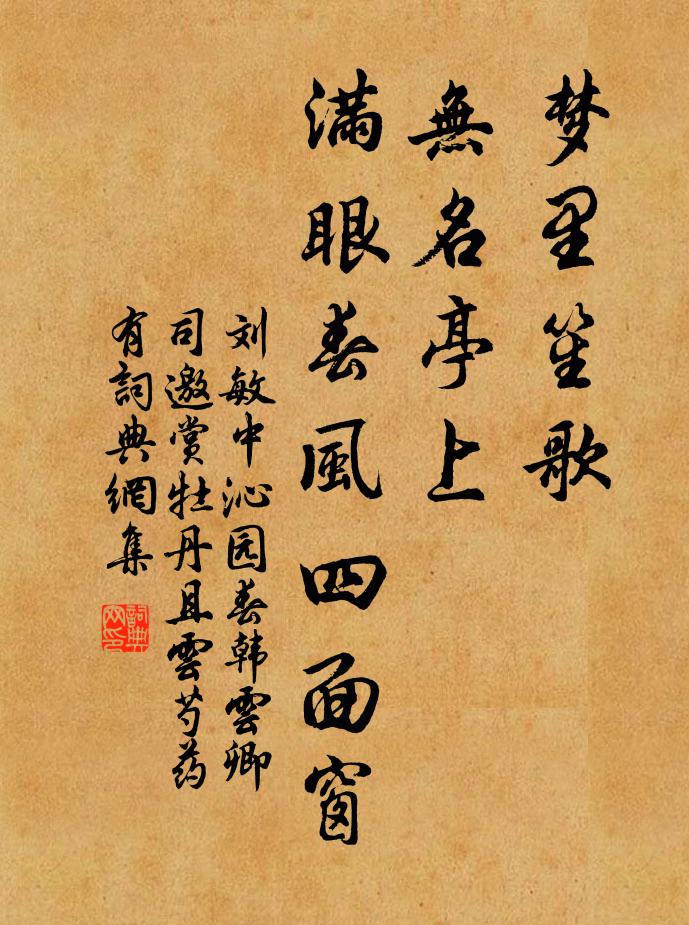 梦里笙歌
無名亭上
滿眼春風四面窗
刘敏中沁园春韩雲卿
司邀赏牡丹且雲芍药
有詞典網集
詞典
网印